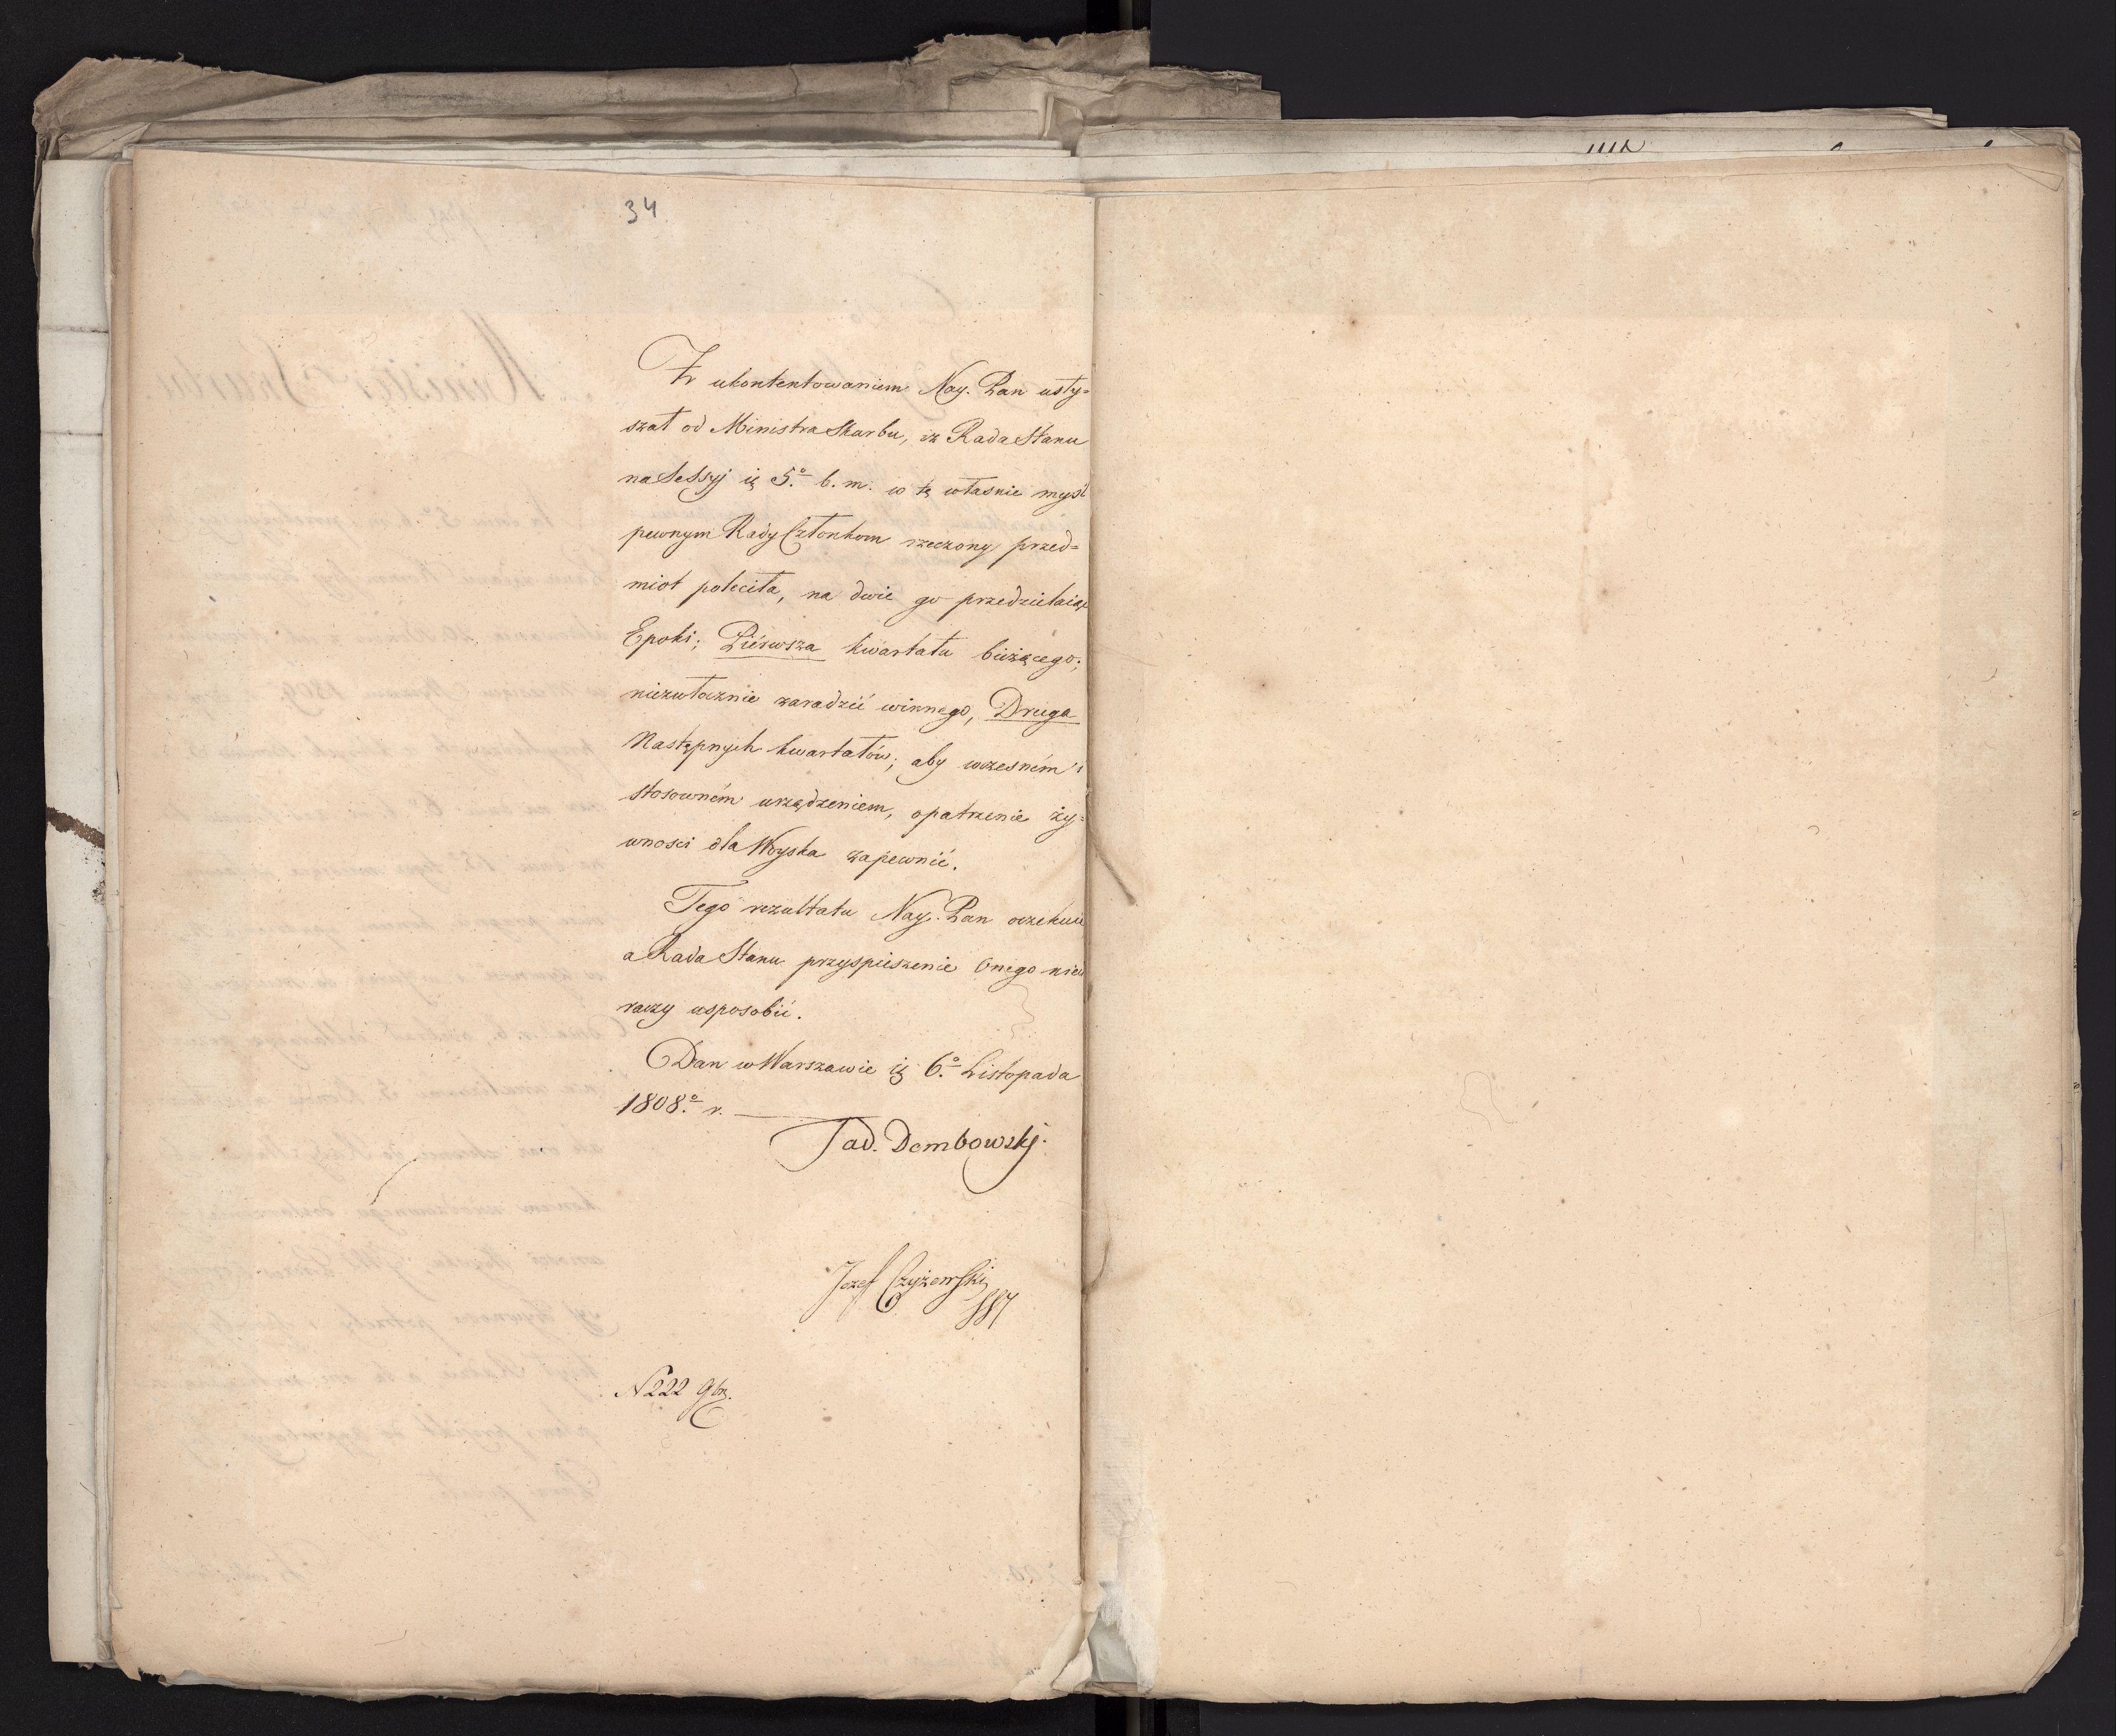 34
Z ukontentowaniem Nay. Pan usły=
szał od Ministra Skarbu, iż Rada Stanu
na Sessyj 5.° b. m. w tę własnie mysl
pewnym Rady Członkom rzeczony przed=
miot poleciła, na dwie go przedzielaiąc
Epoki; Piérwsza kwartału bieżącego;
niezwłocznie zaradzić winnego, Druga
Następnych kwartałów; aby wczesném i
stosowném urządzeniem, opatrzenie ży=
wnosci dla Woyska zapewnić.
Tego rezultatu Nay. Pan oczekuie
a Rada Stanu przyspieszenie Onego
raczy usposobić.
Dan w Warszawie 6.° Listopada
1808.° r.
Tad. Dembowskj.
Jozef Czyżewski
N 222 9br.